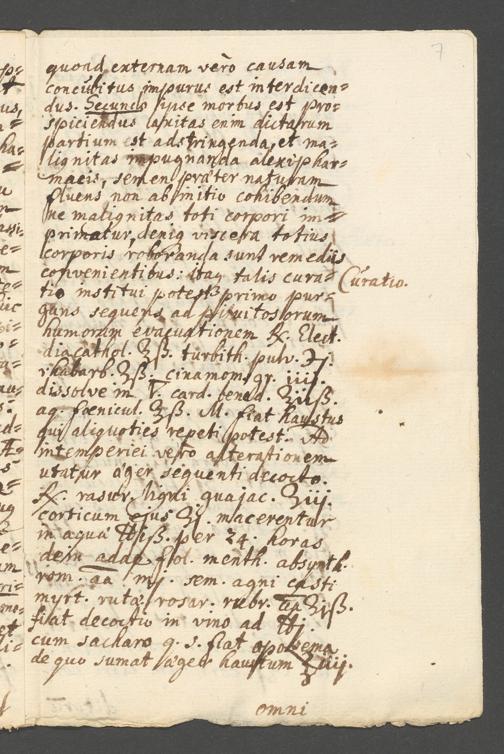 7
quoad externam vero causam
concubitus impurus est interdicen=
dus. Secundo ipse morbus est pro=
spiciendus laxitas enim dictarum
partium est adstringenda, et ma=
lignitas impugnanda alexiphar=
macis, semen præter naturam
fluens non ab initio cohibendum
ne malignitas toti corpori im=
primatur, deniq viscera totius
corporis roboranda sunt remediis
convenientibus: itaq talis cura=
Curatio.
tio institui potest primo pur=
gans sequens ad pituitosorum
humorum evacuationem ℞. Elect.
diacathol. ℥ß. turbith. pulv. ʒj.
rhabarb. ʒß. cinamom. gr. iiij.
dissolve in card. bened. ℥iiß.
aq. fœnicul. ℥ß. M. fiat haustus
qui aliquoties repeti potest. Ad
intemperiei vero alterationem
utatur æger sequenti decocto.
℞. rasur. ligni guajac. ℥iij.
corticum ejus ℥j. macerentur
in aqua ℔iß. per 24. horas
dein adde fol. menth. absynth.
rom. aa mj. sem. agni casti
myrt. rutæ, rosar. rubr. aa ʒiß.
fiat decoctio in vino ad ℔j.
cum sacharo q. s. fiat apozema
de quo sumat æger haustum ℥iiij.
omni